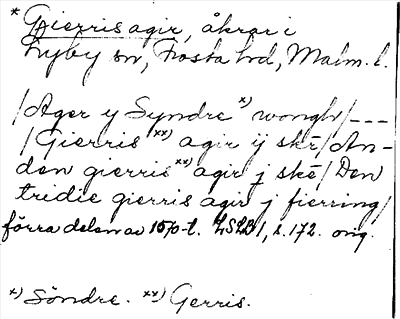 * Gierris agir, åkrar i
Lyby sn, Frosta hd, Malm. l.
/Ager y Syndre *) wonghr/---
/Gierris **) agir ÿ skē/An-
den gierris **) agir j skē/Den
tridie gierris agir j fierring/
förra delen av 1570-t. LSLB 1, s. 172. orig.
*) Söndre. **) Gerris.